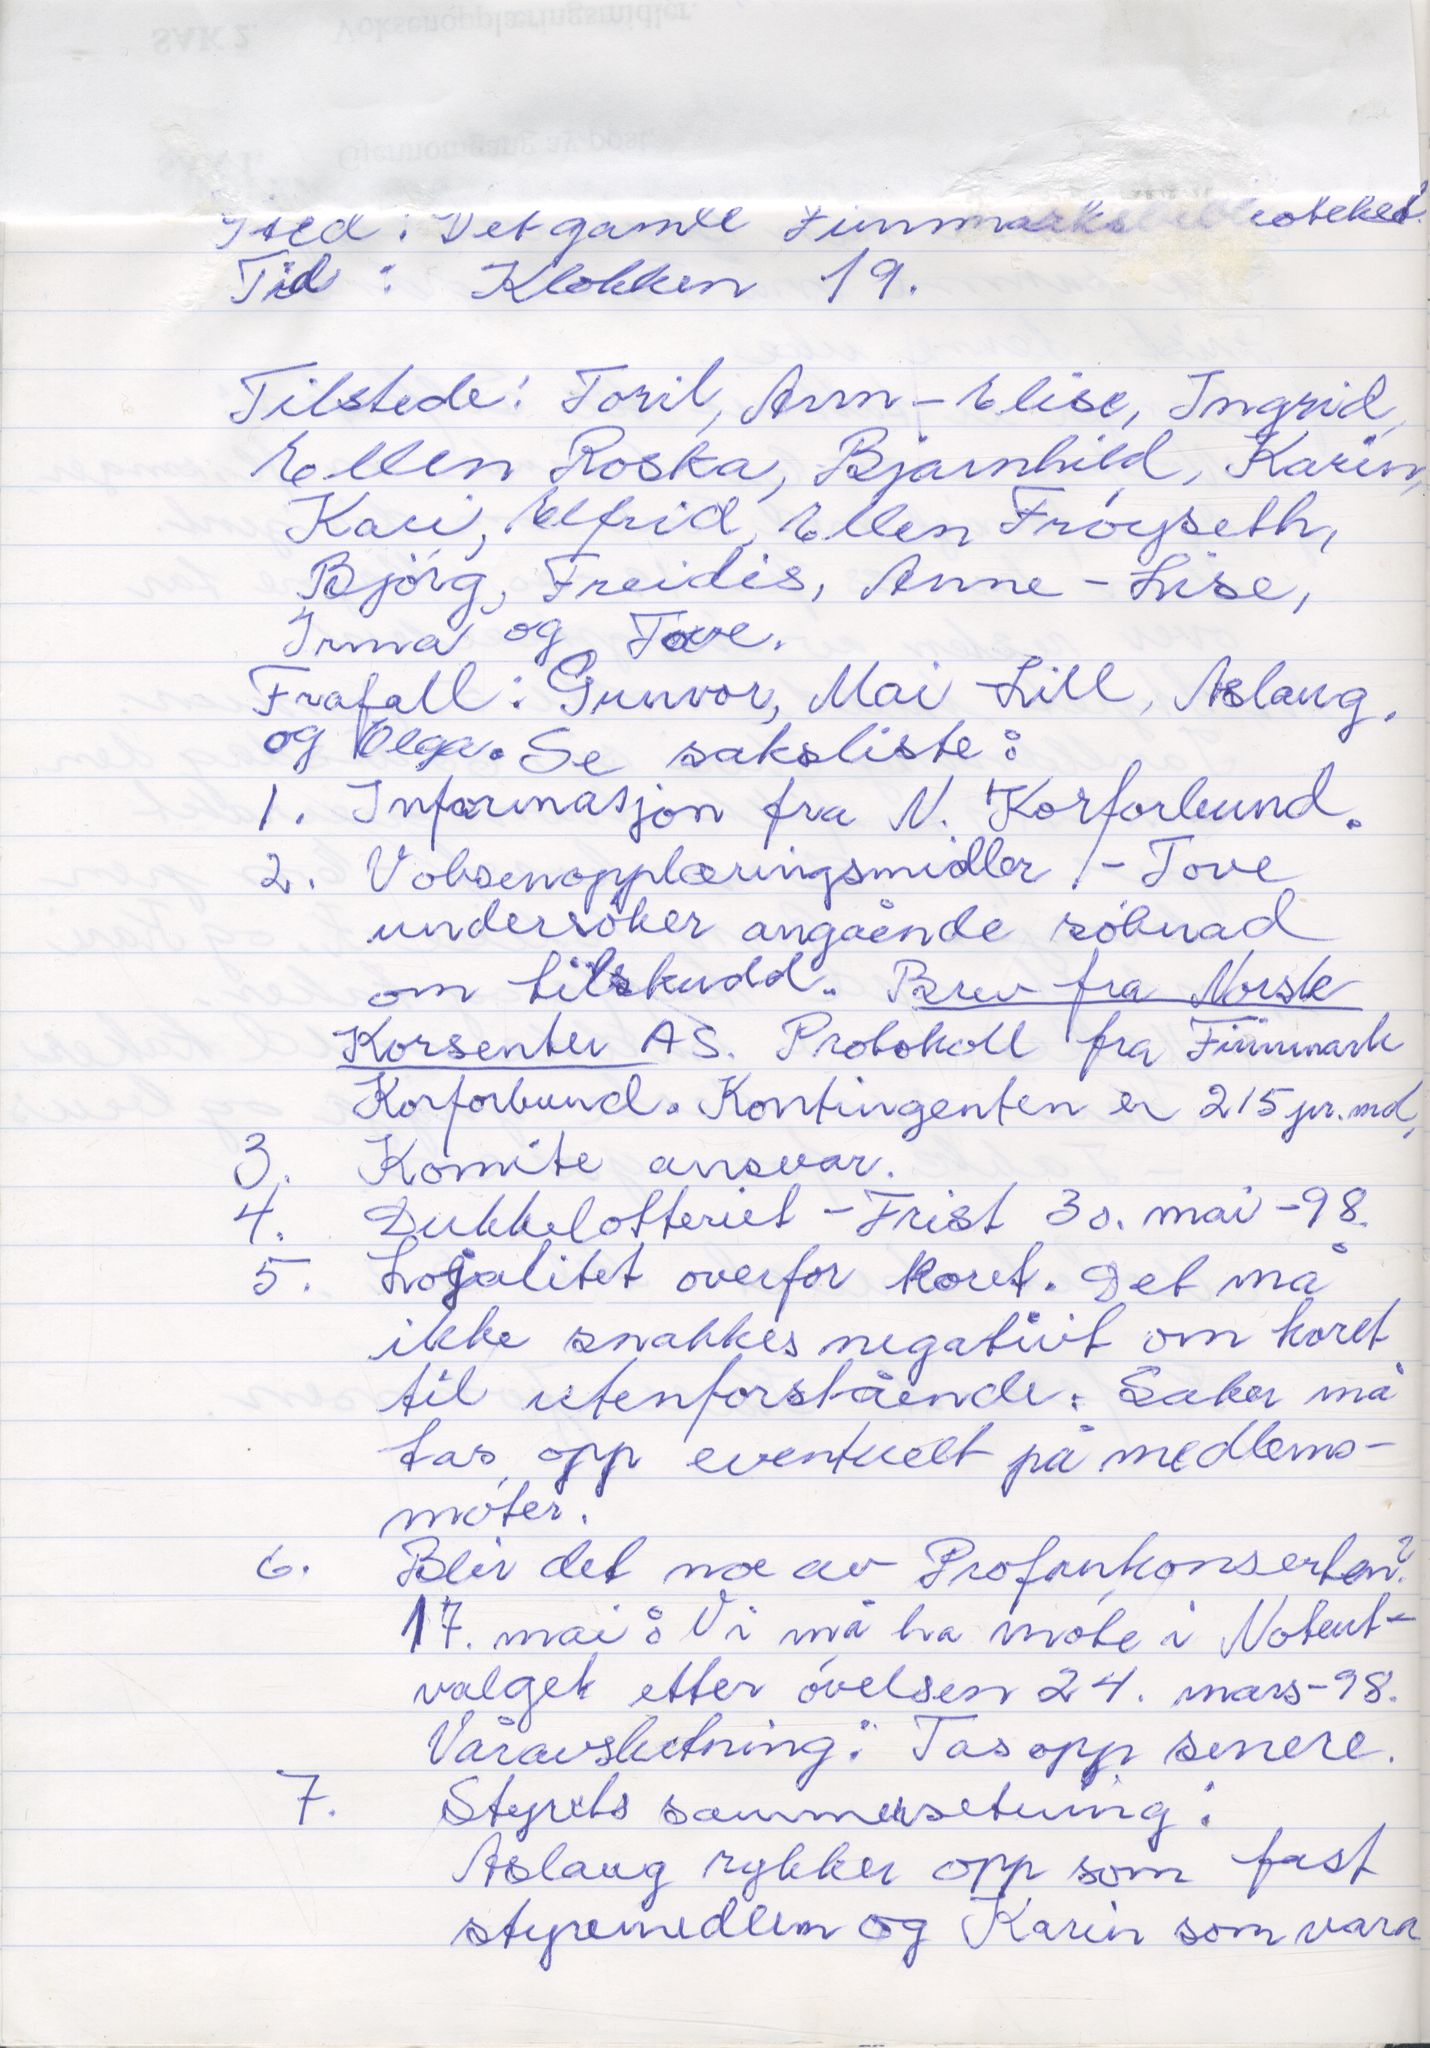 Sted: Det gamle Finnmarksbiblioteket.
Tid: Klokken 19.
Tilstede: Toril, Ann-Elise, Ingrid,
Ellen Roska, Bjarnhild, Karin,
Kari, Elfrid, Ellen Frøyseth,
Bjørg, Freidis, Anne-Lise,
Irma og Tove.
Frafall: Gunvor, Mai-Lill, Aslaug.
og Olga. Se saksliste:
1. Informasjon fra N. Korforbund.
2. Voksenopplæringsmidler - Tove
undersøker angående søknad
om tilskudd. Brev fra Norsk
Korsenter AS. Protokoll fra Finnmark
Korforbund. Kontingenten er 215 pr. md,
3. Komite ansvar.
4. Dukkelotteriet - Frist 30. mai -98.
5. Lojalitet overfor koret. Det må
ikke snakkes negativt om koret
til utenforstående. Saker må
tas opp eventuelt på medlems-
møter.
6. Blir det noe av Profankonserten?
17. mai: Vi må ha møte i Noteut-
valget etter øvelsen 24. mars-98.
Våravslutning: Tas opp senere.
7. Styrets sammensetning:
Aslaug rykker opp som fast
styremedlem og Karin som vara